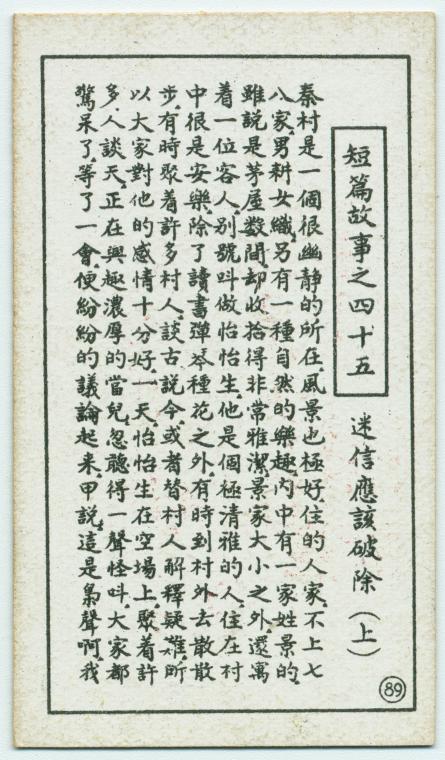 短篇故事之四十五
迷信應該破除(上)
秦村是一個很幽靜的所在,風景也極好,住的人家,不上七
八家,男耕女織,另有一種自然的樂趣,內中有一家姓景的,
雖說是茅屋數間,却收拾得非常雅潔,景家大小之外,還寓
着一位客人,別號呌做怡怡生,他是個極清雅的人,住在村
中很是安樂,除了讀書彈琴種花之外,有時到村外去散散
步,有時聚着許多村人,談古說今,或者替村人解釋疑難,所
以大家對他的感情十分好,一天,怡怡生在空場上,聚着許
多人談天,正在興趣濃厚的當兒,忽聽得一聲怪呌,大家都
驚呆了,等了一會,便紛紛的議論起來,甲說,這是梟聲啊,我
89